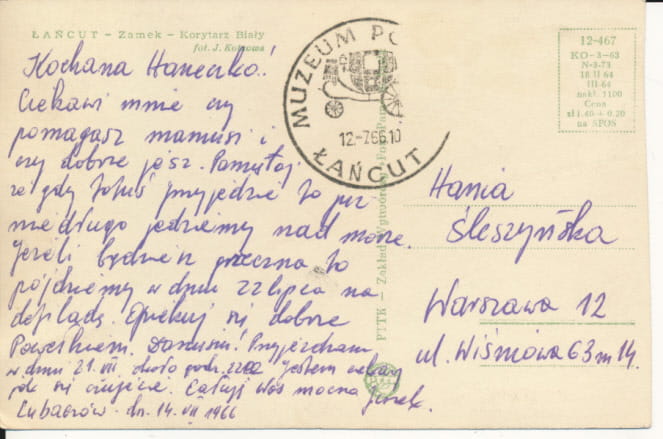 ŁAŃCUT – Zamek – Korytarz Biały
fot. J. Kotzowa
Kochana Haneczko!
Ciekawi mnie czy
pomagasz mamusi i
czy dobrze jesz. Pamiętaj
że gdy Totuś przyjedzie to już
niedługo jedziemy nad morze.
Jeżeli będziesz grzeczna to
pójdziemy w dniu 22 lipca na
defiladę. Opiekuj się dobrze
Pawełkiem. Danusiu! Przyjeżdżam
w dniu 21.VII. około godz. 22. Jestem ciekawy
jak się czujecie. Całuję Was mocno Jurek.
Lubaczów - dn. 14.VII 1966
MUZEUM
12.-7.66.10
ŁAŃCUT
PTTK –
12-467
KO-3-63
N-3-73
18 II 64
III-64
nakł. 1100
Cena
zł 1.40 + 0.20
na SFOS
Hania
Śleszyńska
Warszawa 12
ul. Wiśniowa 63 m 14.